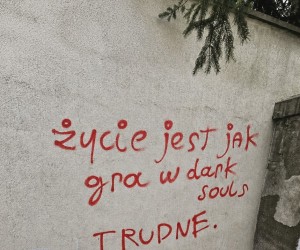 życie jest jak
gra w dark
souls
TRUDNE.